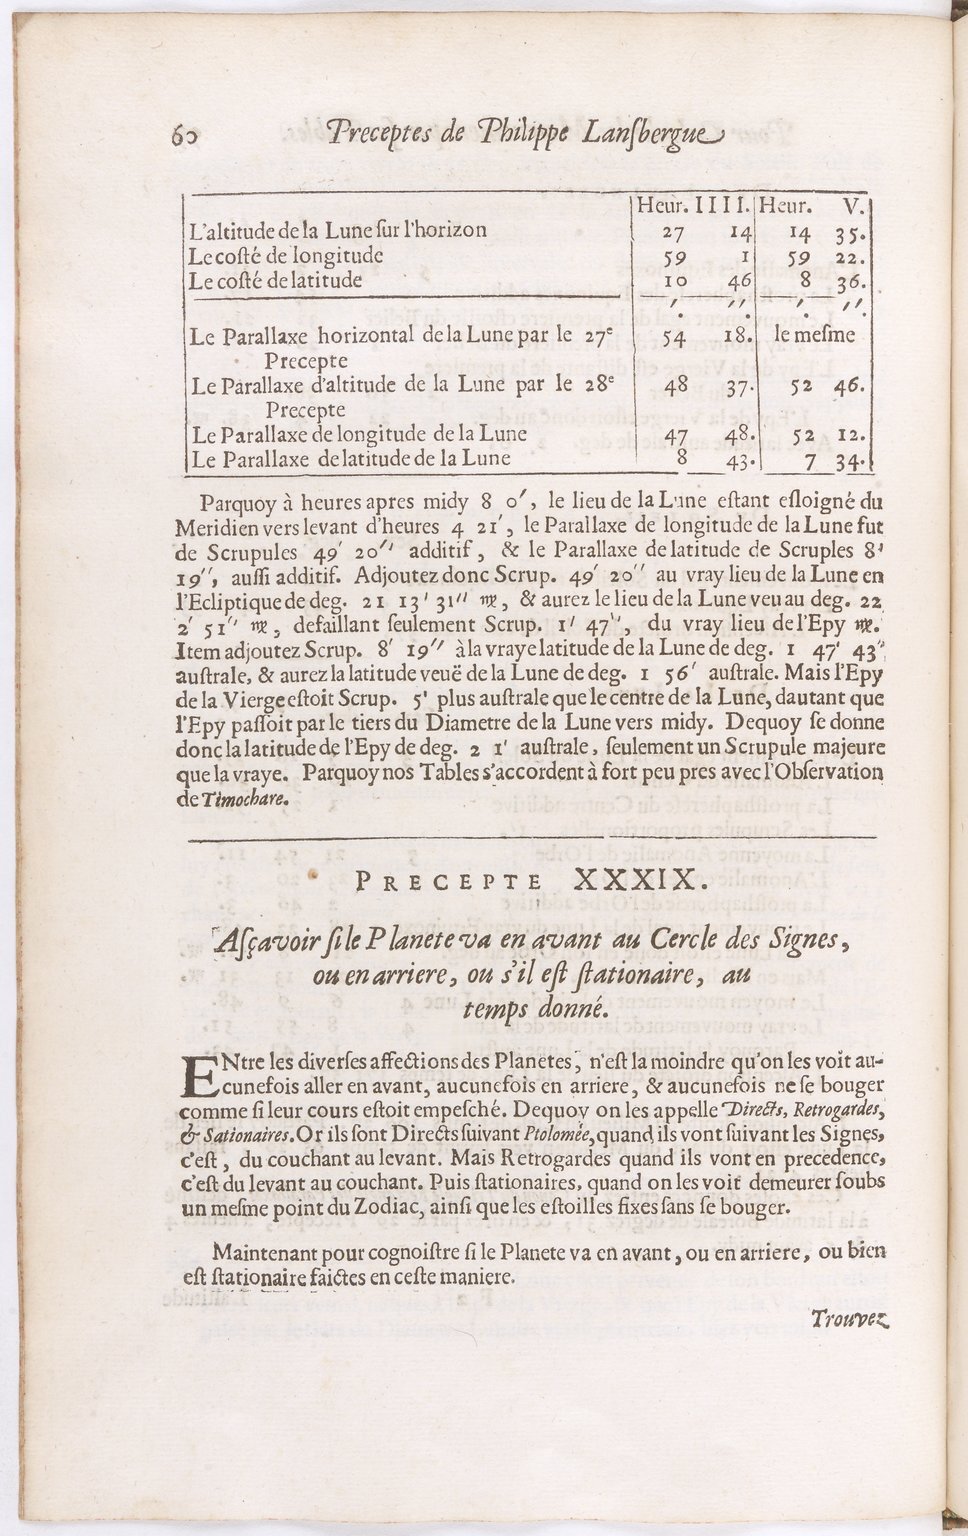 60 Preceptes de Philippe Lanſbergue
Heur. IIII. Heur. V.
L'altitude de la Lune ſur l'horizon 27 14 14 35.
Le coſté de longitude 59 1 59 22.
Le coſté de latitude 10 46 8 36.
′ ″ ′ ″
Le Parallaxe horizontal de la Lune par le 27e 54 18. le meſme
Precepte
Le Parallaxe d'altitude de la Lune par le 28e 48 37. 52 46.
Precepte
Le Parallaxe de longitude de la Lune 47 48. 52 12.
Le Parallaxe de latitude de la Lune 8 43. 7 34.
Parquoy à heures apres midy 8 0′, le lieu de la Lune eſtant eſloigné du
Meridien vers levant d'heures 4 21′, le Parallaxe de longitude de la Lune fut
de Scrupules 49′ 20″ additif, & le Parallaxe de latitude de Scruples 8′
19″, auſſi additif. Adjoutez donc Scrup. 49′ 20″ au vray lieu de la Lune en
l'Ecliptique de deg. 21 13′ 31″ ♍, & aurez le lieu de la Lune veu au deg. 22
2′ 51″ ♍, defaillant ſeulement Scrup. 1′ 47″, du vray lieu de l'Epy ♍.
Item adjoutez Scrup. 8′ 19″ à la vraye latitude de la Lune de deg. 1 47′ 43″
auſtrale, & aurez la latitude veuë de la Lune de deg. 1 56′ auſtrale. Mais l'Epy
de la Vierge eſtoit Scrup. 5′ plus auſtrale que le centre de la Lune, dautant que
l'Epy paſſoit par le tiers du Diametre de la Lune vers midy. Dequoy ſe donne
donc la latitude de l'Epy de deg. 2 1′ auſtrale, ſeulement un Scrupule majeure
que la vraye. Parquoy nos Tables s'accordent à fort peu pres avec l'Obſervation
de Timochare.
PRECEPTE XXXIX.
Aſçavoir ſi le Planete va en avant au Cercle des Signes,
ou en arriere, ou s'il eſt ſtationaire, au
temps donné.
ENtre les diverſes affections des Planetes, n'eſt la moindre qu'on les voit au-
cunefois aller en avant, aucunefois en arriere, & aucunefois ne ſe bouger
comme ſi leur cours eſtoit empeſché. Dequoy on les appelle Directs, Retrogardes,
& Sationaires. Or ils ſont Directs ſuivant Ptolomée, quand ils vont ſuivant les Signes,
c'eſt, du couchant au levant. Mais Retrogardes quand ils vont en precedence,
c'eſt du levant au couchant. Puis ſtationaires, quand on les voit demeurer ſoubs
un meſme point du Zodiac, ainſi que les eſtoilles fixes ſans ſe bouger.
Maintenant pour cognoiſtre ſi le Planete va en avant, ou en arriere, ou bien
eſt ſtationaire faictes en ceſte maniere.
Trouvez